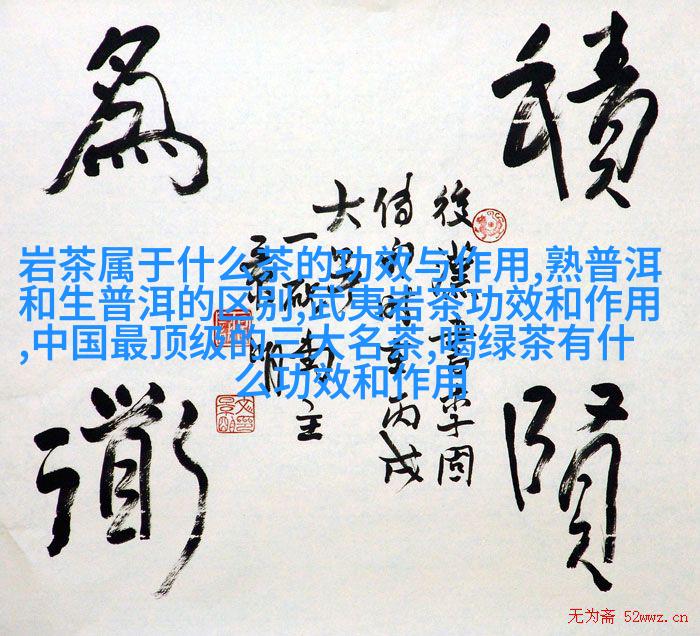 積賢
為衟
後漢書李固
傳句時在丙戌
大暑
一硯
主
岩茶属于什么茶的功效与作用,熟普洱
和生普洱的区别,武夷岩茶功效和作用
,中国最顶级的三大名茶,喝绿茶有什
么功效和作用
无为斋 52wwz.cn